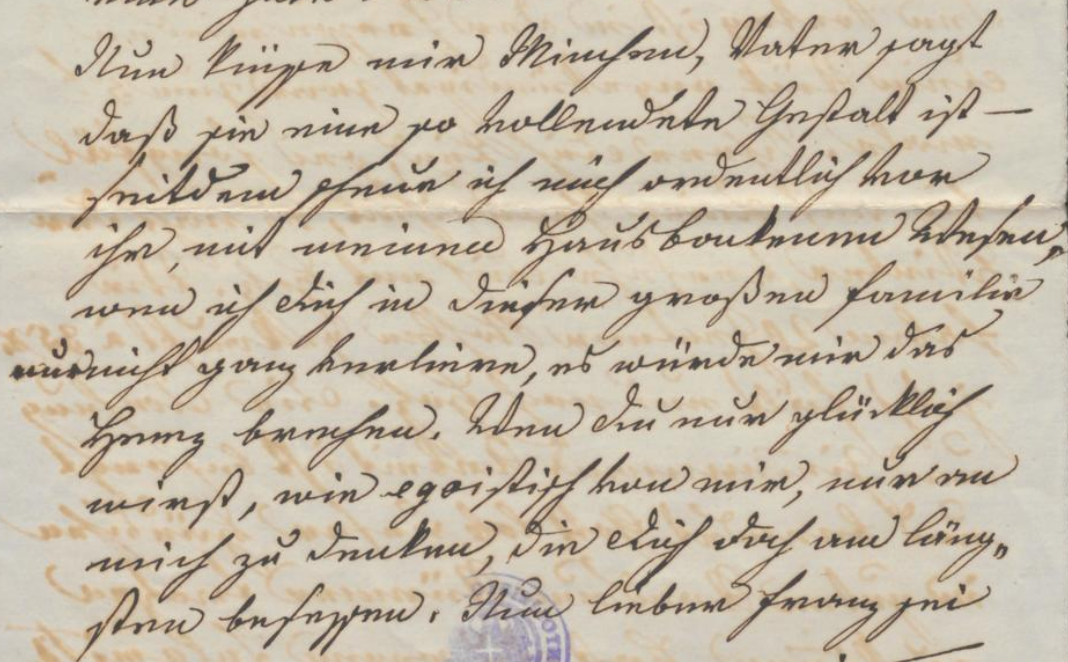 Nun küsse mir Minchen, Vater sagt
daß sie eine so vollendete Gestalt ist —
seitdem scheue ich mich ordentlich vor
ihr, mit meinem Hausbackenen Wesen,
wen ich Dich in dieser großen Familie
nur nicht ganz verliere, es würde mir das
Herz brechen. Wen Du nur glücklich
wirst, wie egoistisch von mir, nur an
mich zu denken, die Dich doch am läng„
sten besessen. Nun lieber Franz sei